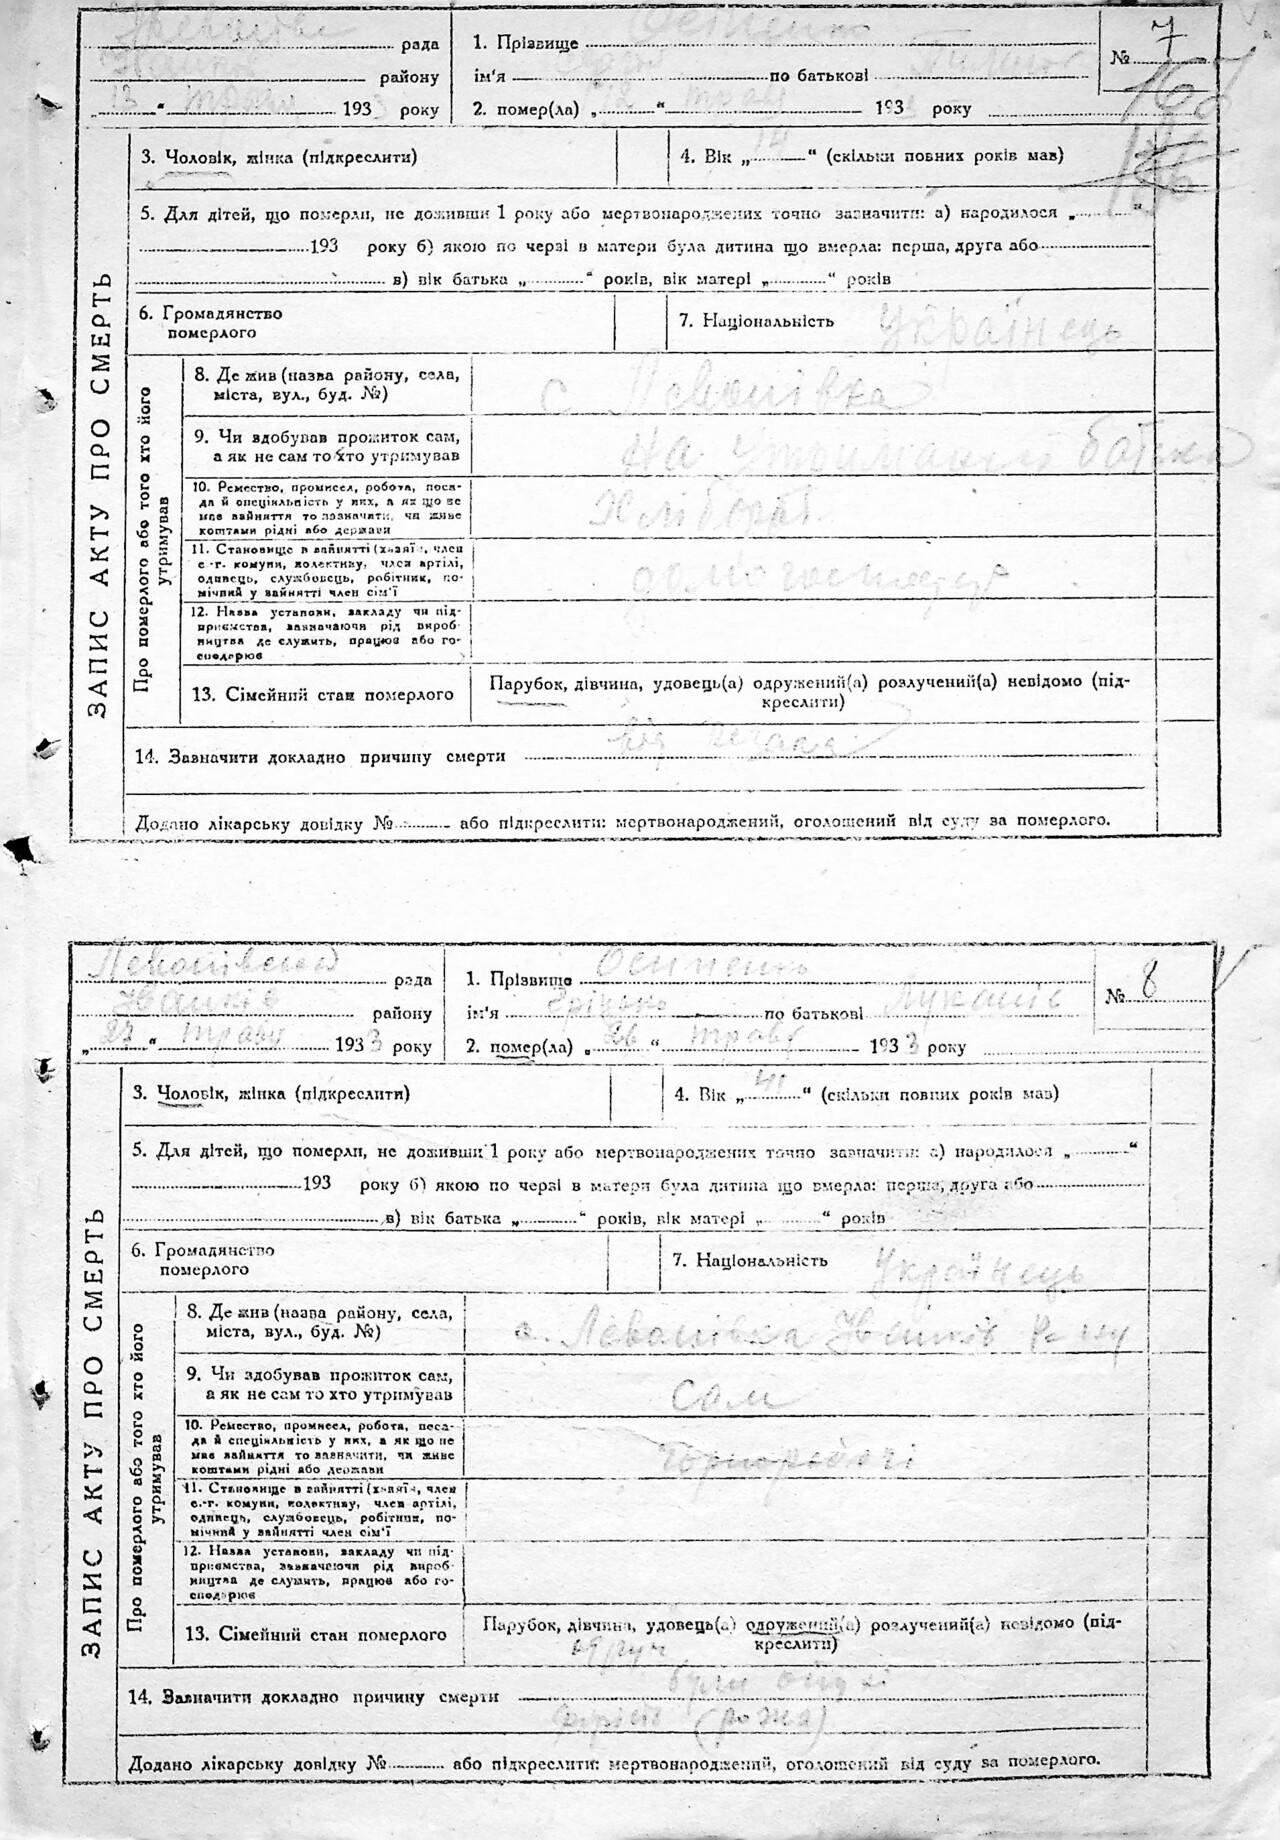 рада
району
" травня 1933 року
1. Прізвище Осипенко
ім'я по батькові
2. помер(ла) „12" трав 193 року
№ 7
3. Чоловік, жінка (підкреслити)
4. Вік „14" (скільки повних років мав)
5. Для дітей, що померли, не доживши 1 року або мертвонароджених точно зазначити: а) народилося „ "
193 року б) якою по черзі в матери була дитина що вмерла: перша, друга або
в) вік батька „ " років, вік матері „ " років
6. Громадянство
померлого
7. Національність Українець
ЗАПИС АКТУ ПРО СМЕРТЬ
Про померлого або того хто його
утримував
8. Де жив (назва району, села,
міста, вул., буд. №)
с Левонівка
9. Чи здобував прожиток сам,
а як не сам то хто утримував
На утриманні батька
10. Ремество, промисел, робота, поса-
да й спеціяльність у них, а як що не
має зайняття то зазначити, чи живе
коштами рідні або держави
Хлібороб
11. Становище в зайнятті (хазяїн, член
с.-г. комуни, колективу, член артілі,
одинець, службовець, робітник, по-
мічний у зайнятті член сім'ї
12. Назва установи, закладу чи під-
приємства, зазначаючи рід вироб-
ництва де служить, працює або го-
сподарює
13. Сімейний стан померлого
Парубок, дівчина, удовець(а) одружений(а) розлучений(а) невідомо (під-
креслити)
14. Зазначити докладно причину смерти від
Додано лікарську довідку № або підкреслити: мертвонароджений, оголошений від суду за померлого.
Левонівська рада
району
„27" трав 1933 року
1. Прізвище Осипенко
ім'я Грицько по батькові Лукович
2. помер(ла) „26" трав 1933 року
№ 8
3. Чоловік, жінка (підкреслити)
4. Вік „41" (скільки повних років мав)
5. Для дітей, що померли, не доживши 1 року або мертвонароджених точно зазначити: а) народилося „ "
193 року б) якою по черзі в матери була дитина що вмерла: перша, друга або
в) вік батька „ " років, вік матері „ " років
6. Громадянство
померлого
7. Національність Українець
ЗАПИС АКТУ ПРО СМЕРТЬ
Про померлого або того хто його
утримував
8. Де жив (назва району, села,
міста, вул., буд. №)
с. Левонівка
9. Чи здобував прожиток сам,
а як не сам то хто утримував
Сам
10. Ремество, промисел, робота, поса-
да й спеціяльність у них, а як що не
має зайняття то зазначити, чи живе
коштами рідні або держави
Чорноробочі
11. Становище в зайнятті (хазяїн, член
с.-г. комуни, колективу, член артілі,
одинець, службовець, робітник, по-
мічний у зайнятті член сім'ї
12. Назва установи, закладу чи під-
приємства, зазначаючи рід вироб-
ництва де служить, працює або го-
сподарює
13. Сімейний стан померлого
Парубок, дівчина, удовець(а) одружений(а) розлучений(а) невідомо (під-
креслити)
14. Зазначити докладно причину смерти
(рожа)
Додано лікарську довідку № або підкреслити: мертвонароджений, оголошений від суду за померлого.